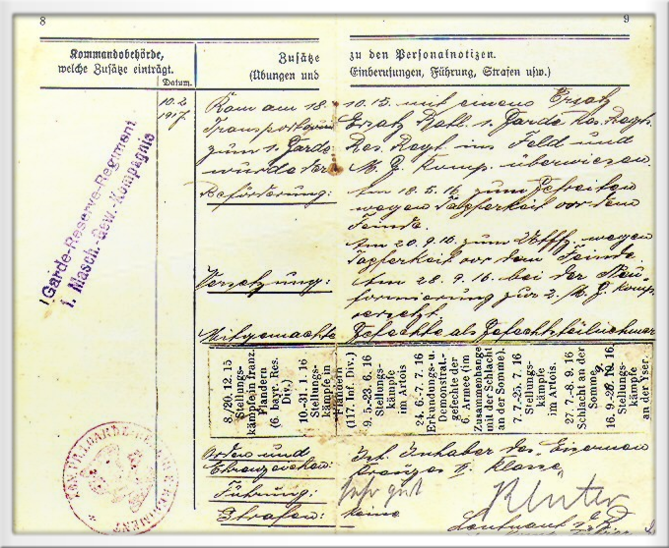 8
9
Kommandobehörde,
welche Zusätze einträgt.
Datum.
Zusätze zu den Personalnotizen.
(Übungen und Einberufungen, Führung, Strafen usw.)
1 Garde-Reserve-Regiment
1. Masch.-Gew.-Kompagnie
10.2
1917.
Kam am 18. 10. 15. mit einem Ersatz
Transport vom Ersatz Batl. 1. Garde Res. Regts.
zum 1. Garde Res. Regt ins Feld und
wurde der M. G. Komp. überwiesen.
Beförderung: Am 18.5.16 zum Gefreiten
wegen Tapferkeit vor dem
Feinde.
Am 20.9.16 zum Utffz. wegen
Tapferkeit vor dem Feinde.
Versetzung: Am 28.9.16 bei der Neu-
formierung zur 2. M. G. Komp.
versetzt.
Mitgemachte Gefechte als Gefechtsteilnehmer
8./20. 12. 15
Stellungs-
kämpfe in franz.
Flandern
(6. bayr. Res.
Div.)
10.-31. 1. 16
Stellungs-
kämpfe in
Flandern
(117. Inf. Div.)
9. 5.-23. 6. 16
Stellungs-
kämpfe
im Artois
24. 6.-7. 7. 16
Erkundungs- u.
Demonstrat.-
gefechte der
6. Armee (im
Zusammenhange
mit der Schlacht
an der Somme).
7. 7.-25. 7. 16
Stellungs-
kämpfe
im Artois.
27. 7.-8. 9. 16
Schlacht an der
Somme.
16. 9.-28. 10. 16.
9.
Stellungs-
kämpfe
an der Yser.
Orden und
Ehrenzeichen: Ist Inhaber des Eisernen
Kreuzes II. Klasse
Führung: sehr gut
Strafen: keine
Leutnant
REGIMENT